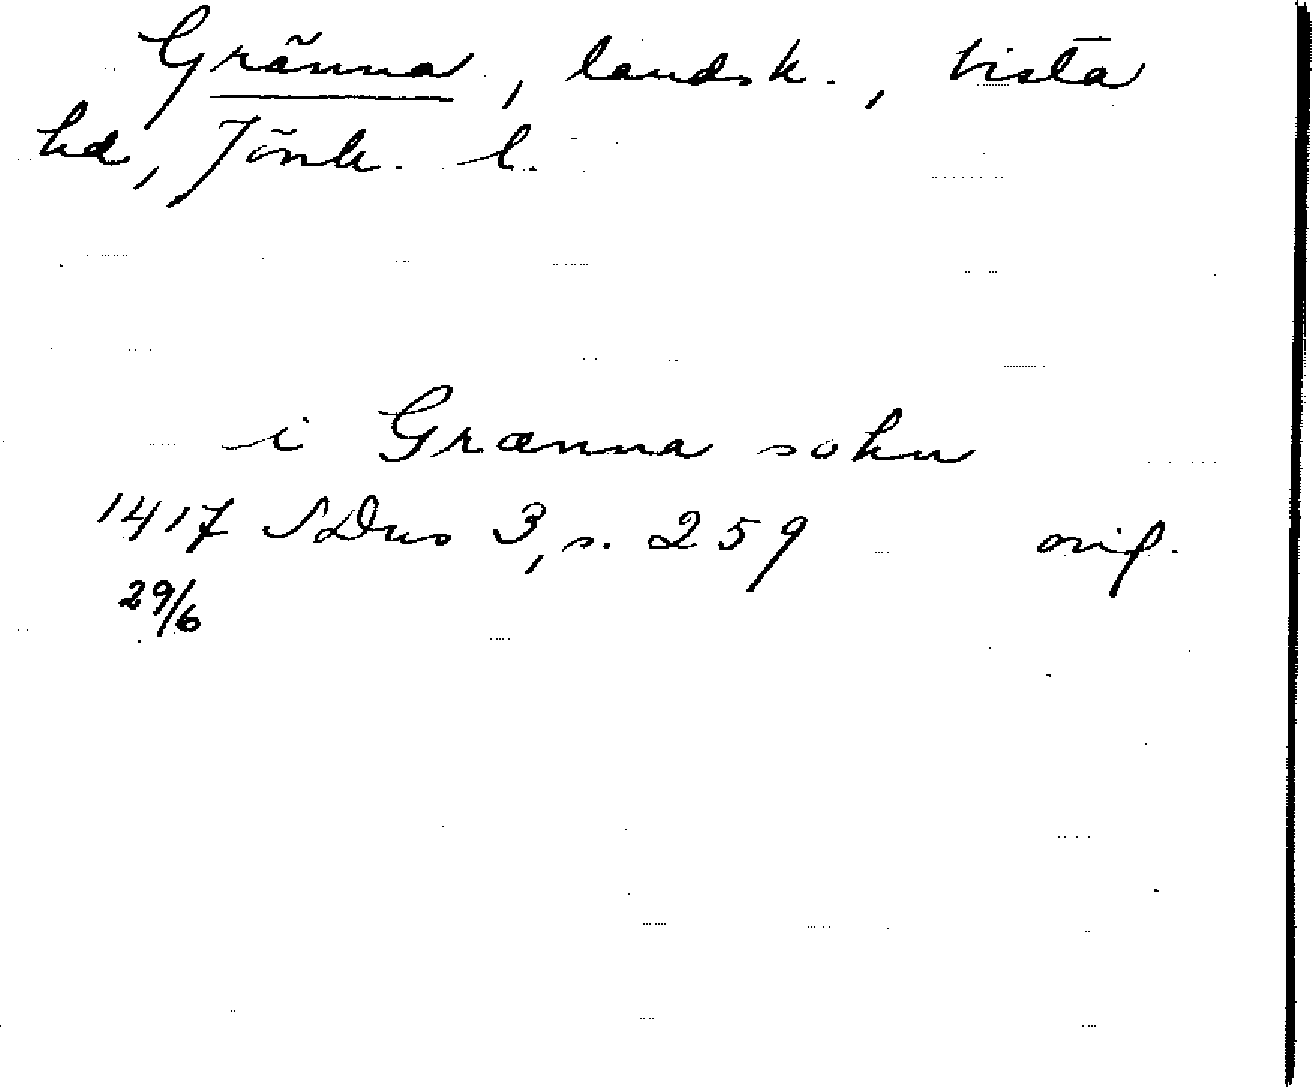 Gränna, landsk., Vista
hd, Jönk. l.
i Grænna sokn
1417 SDns 3, s. 259 orig.
29/6